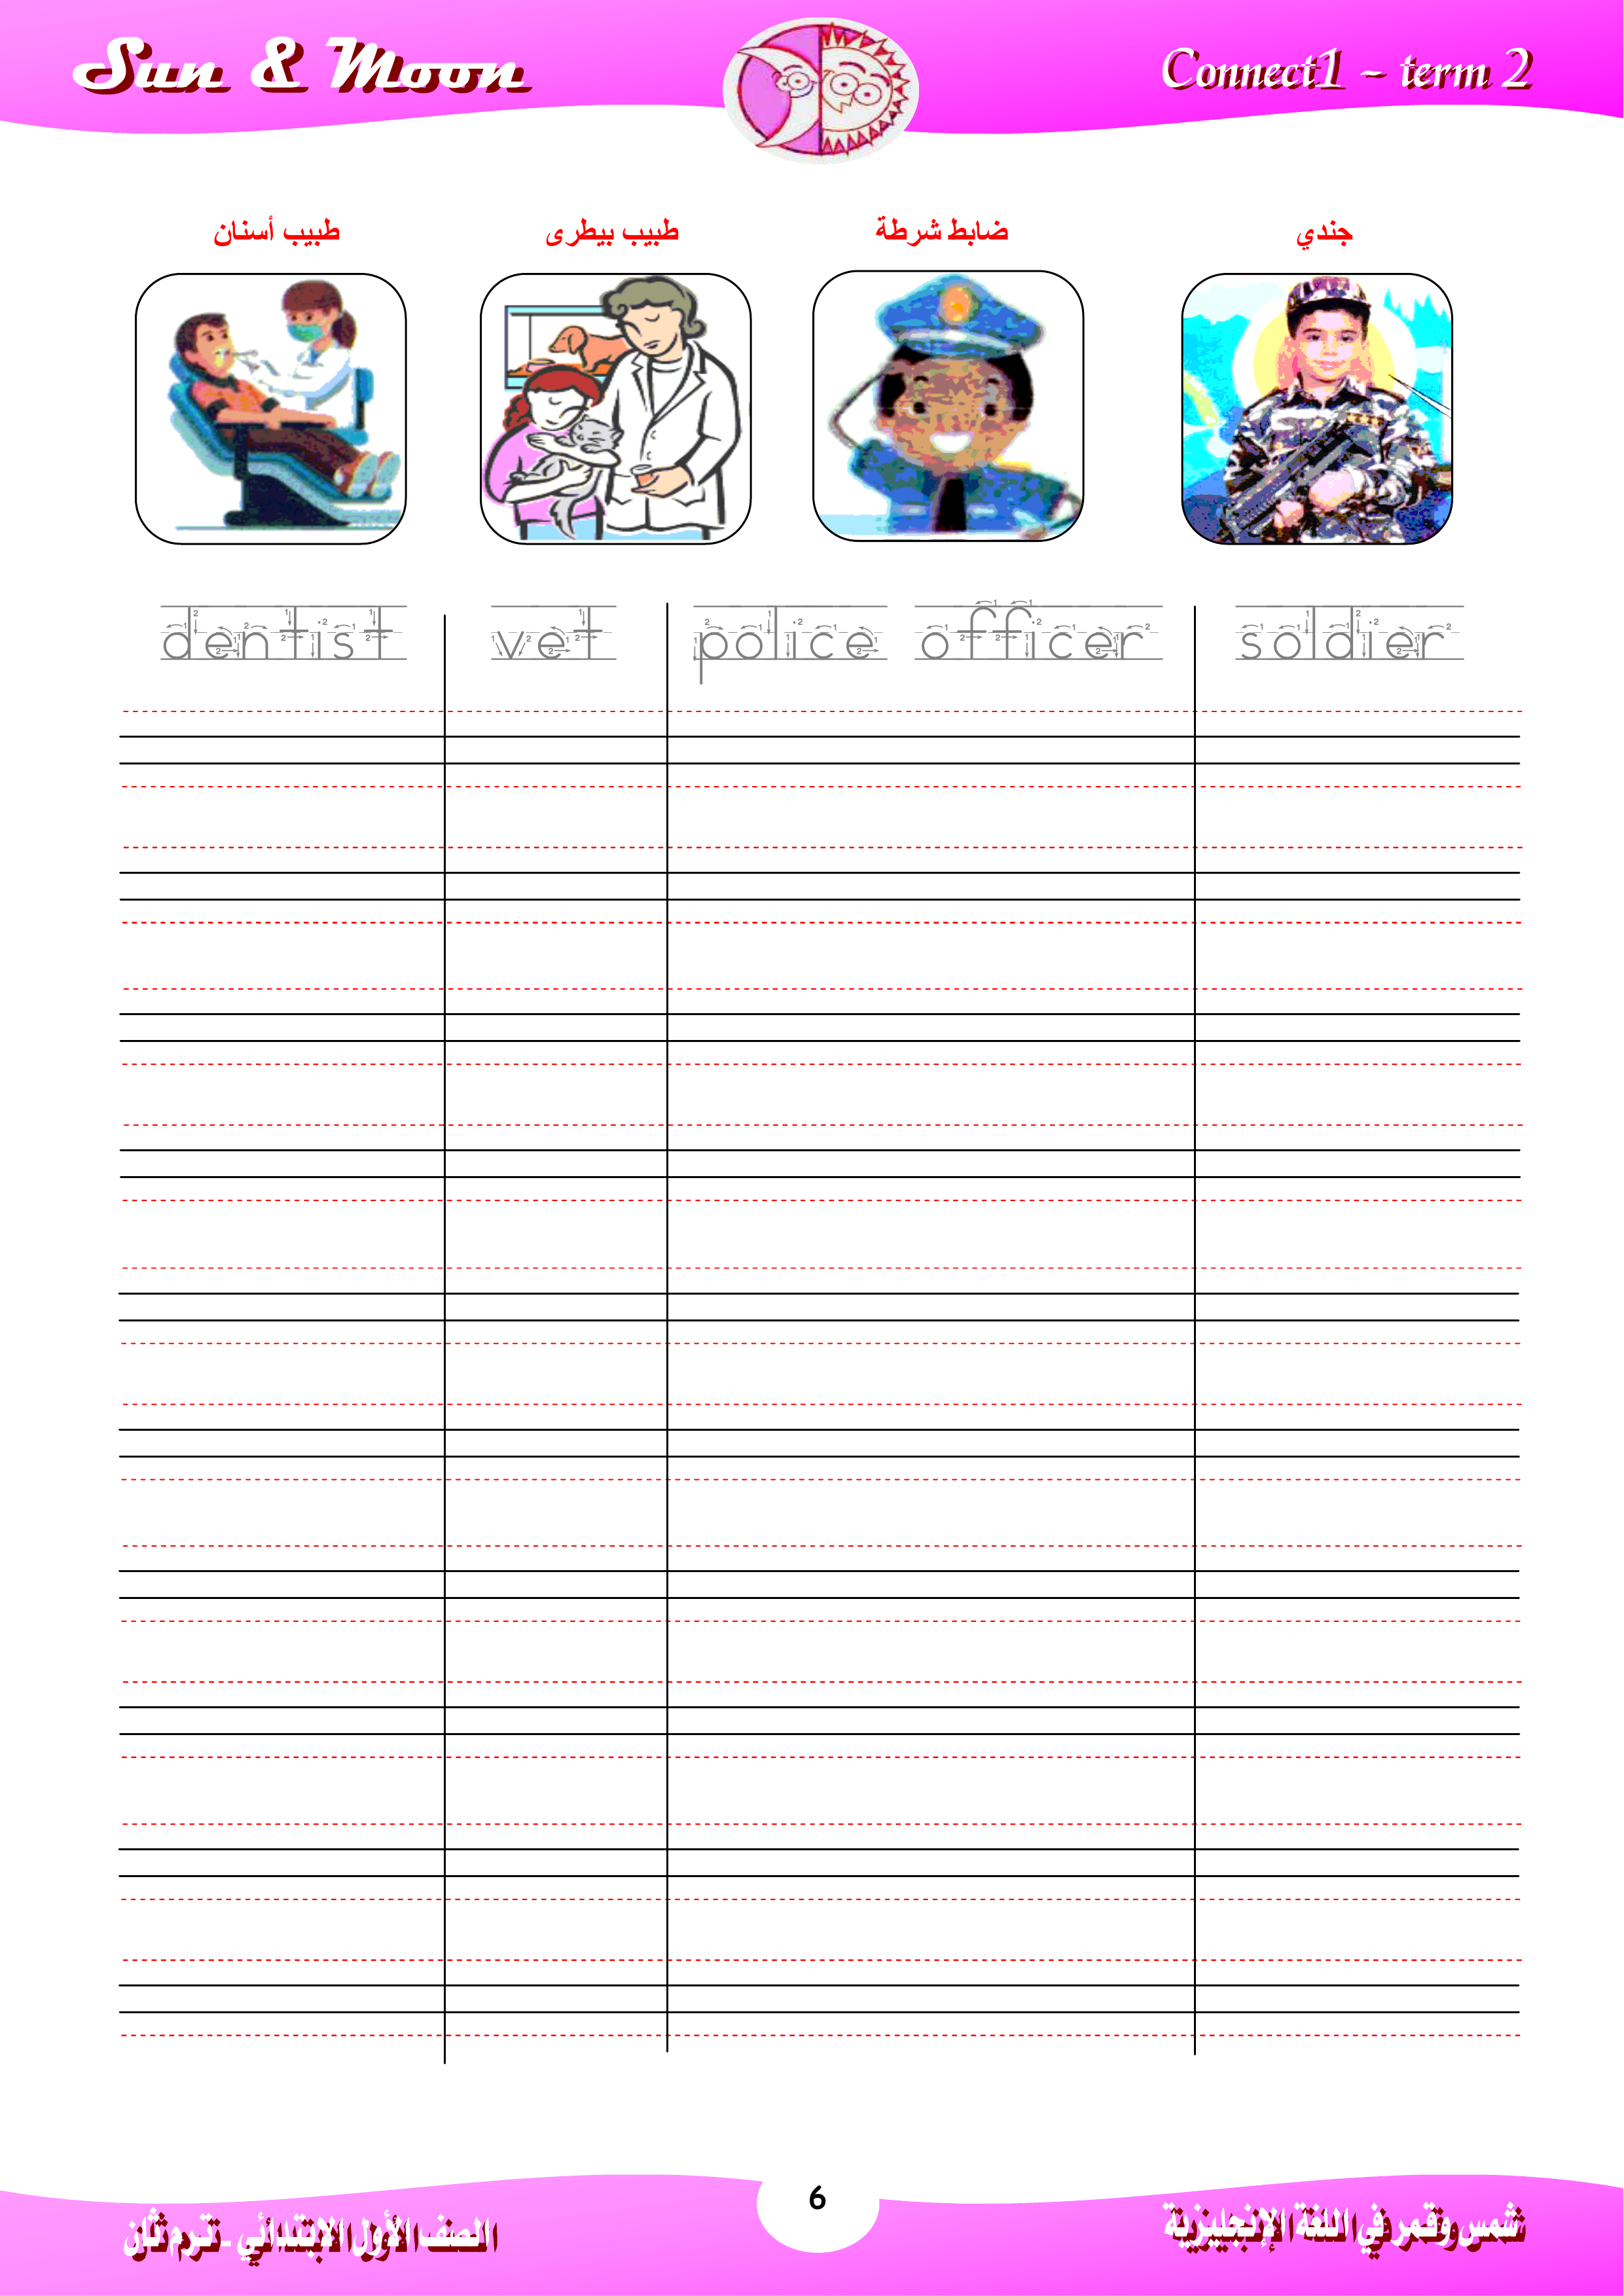 Sun & Moon
Connect1 - term 2
طبيب أسنان
طبيب بيطرى
ضابط شرطة
جندي
dentist
vet
police officer
soldier
الصف الأول الابتدائي - ترم ثان
6
شمس وقمر في اللغة الإنجليزية